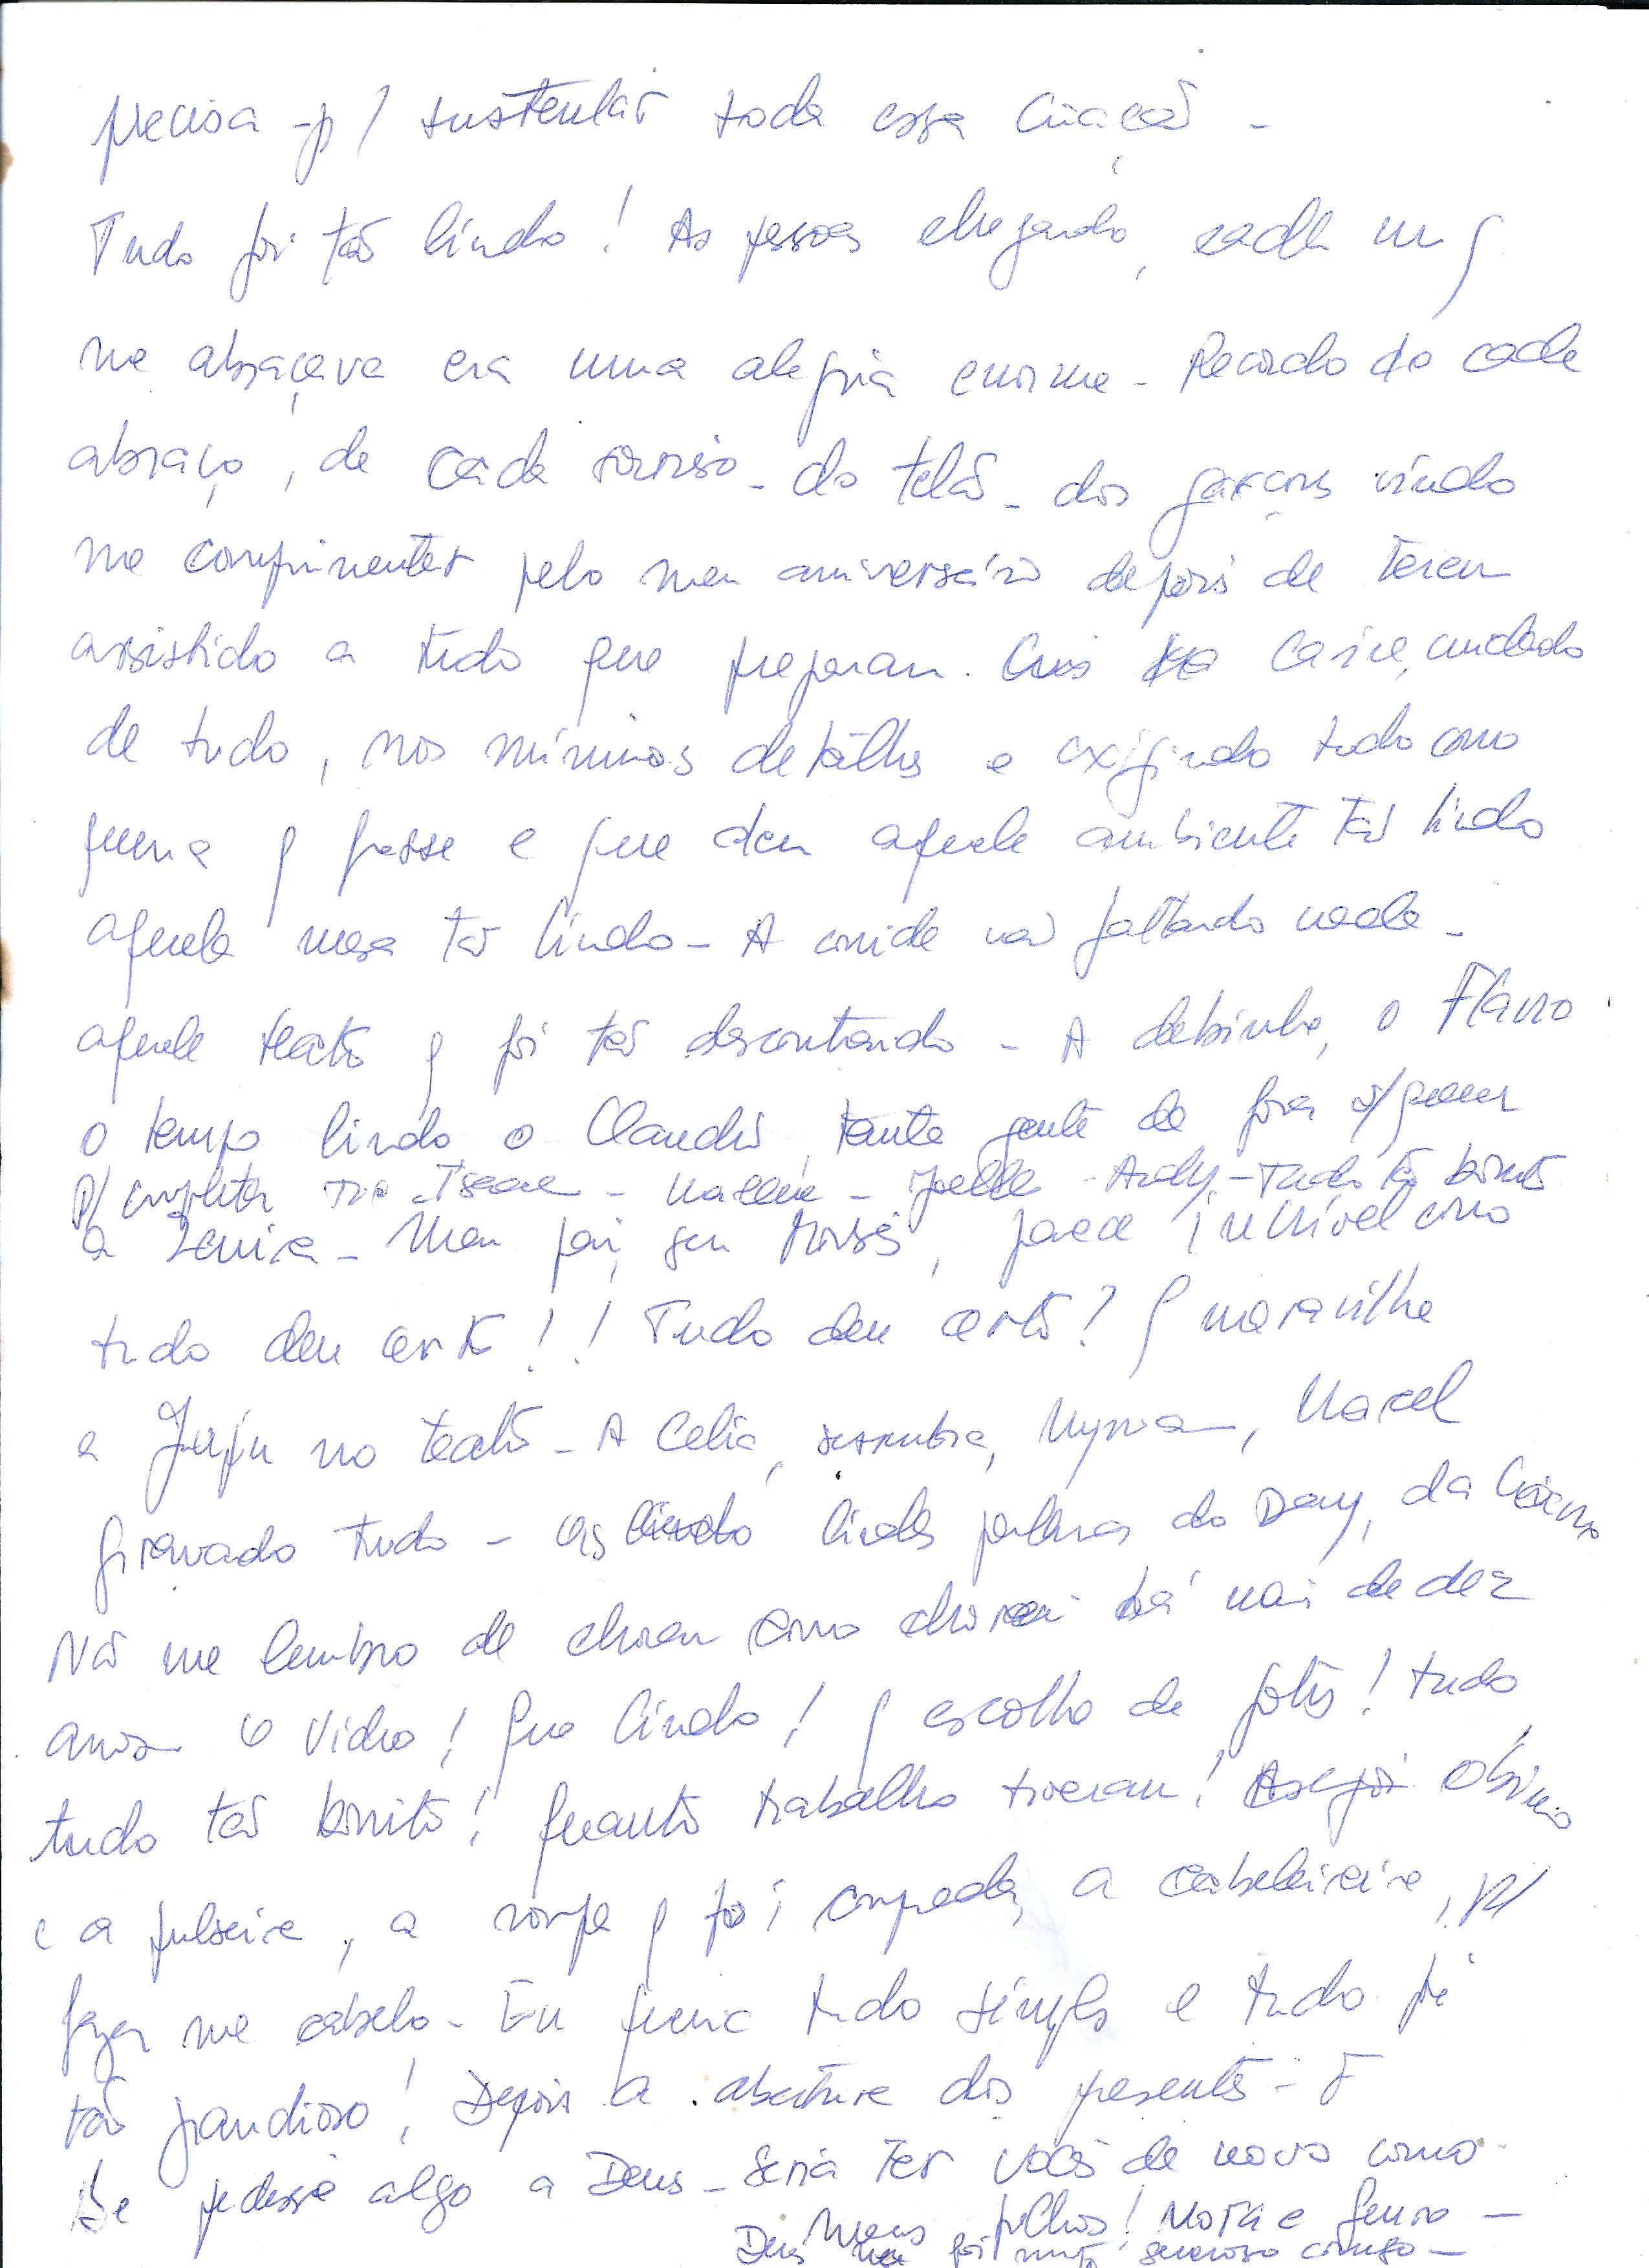 precisa - p/ sustentar toda essa criação -
Tudo foi tão lindo! As pessoas chegando, cada um q
me abraçava era uma alegria enorme - Recordo de cada
abraço, de cada sorriso - do telão - dos garçons vindo
me comprimentar pelo meu aniversário depois de terem
assistido a tudo que preparam. Cris cuidado
de tudo, nos mínimos detalhes e exigindo tudo como
queria q fosse e que deu aquele ambiente tão lindo
aquela mesa tão linda - A comida não faltando nada -
aquele teatro q foi tão descontraido - A debinha, o Flávio
o tempo lindo o Claudio, tanta gente de fora
p/ completar tio Isaac - - Joelle - Andy - Tudo tão bonito
a - Meu pai, seu Moisés, parece incrivel como
tudo deu certo!! Tudo deu certo? q maravilha
a no teatro - A Celia, Myriam, Marcel
gravado tudo - as lindas palavras do Dany, da
Não me lembro de chorar como chorei há mais de dez
anos O Video! Que lindo! q escolha de fotos! tudo,
tudo tão bonito! Quanto trabalho tiveram! O brinco
e a pulseira, a roupa q foi comprada, a cabeleireira, p/
fazer me cabelo - Eu queria tudo simples e tudo foi
tão grandioso! Depois a abertura dos presentes -
Se pedisse algo a Deus - seria ter vocês de novo como
Meus filhos! Nora e genro -
Deus foi muito generoso comigo -